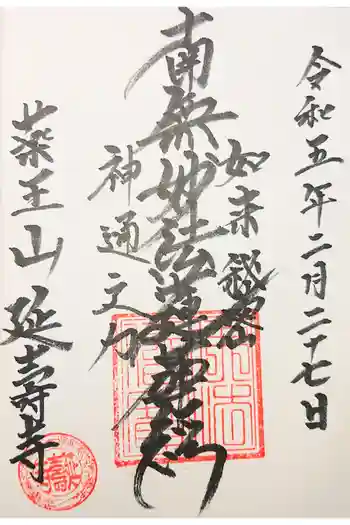 令和五年二月二十七日
如来秘密
南無妙法蓮華経
神通之力
薬王山延壽寺